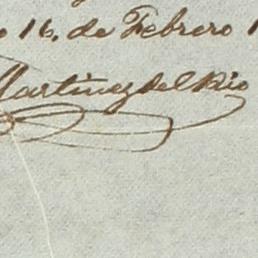 16. de Febrero
Martinez del Rio